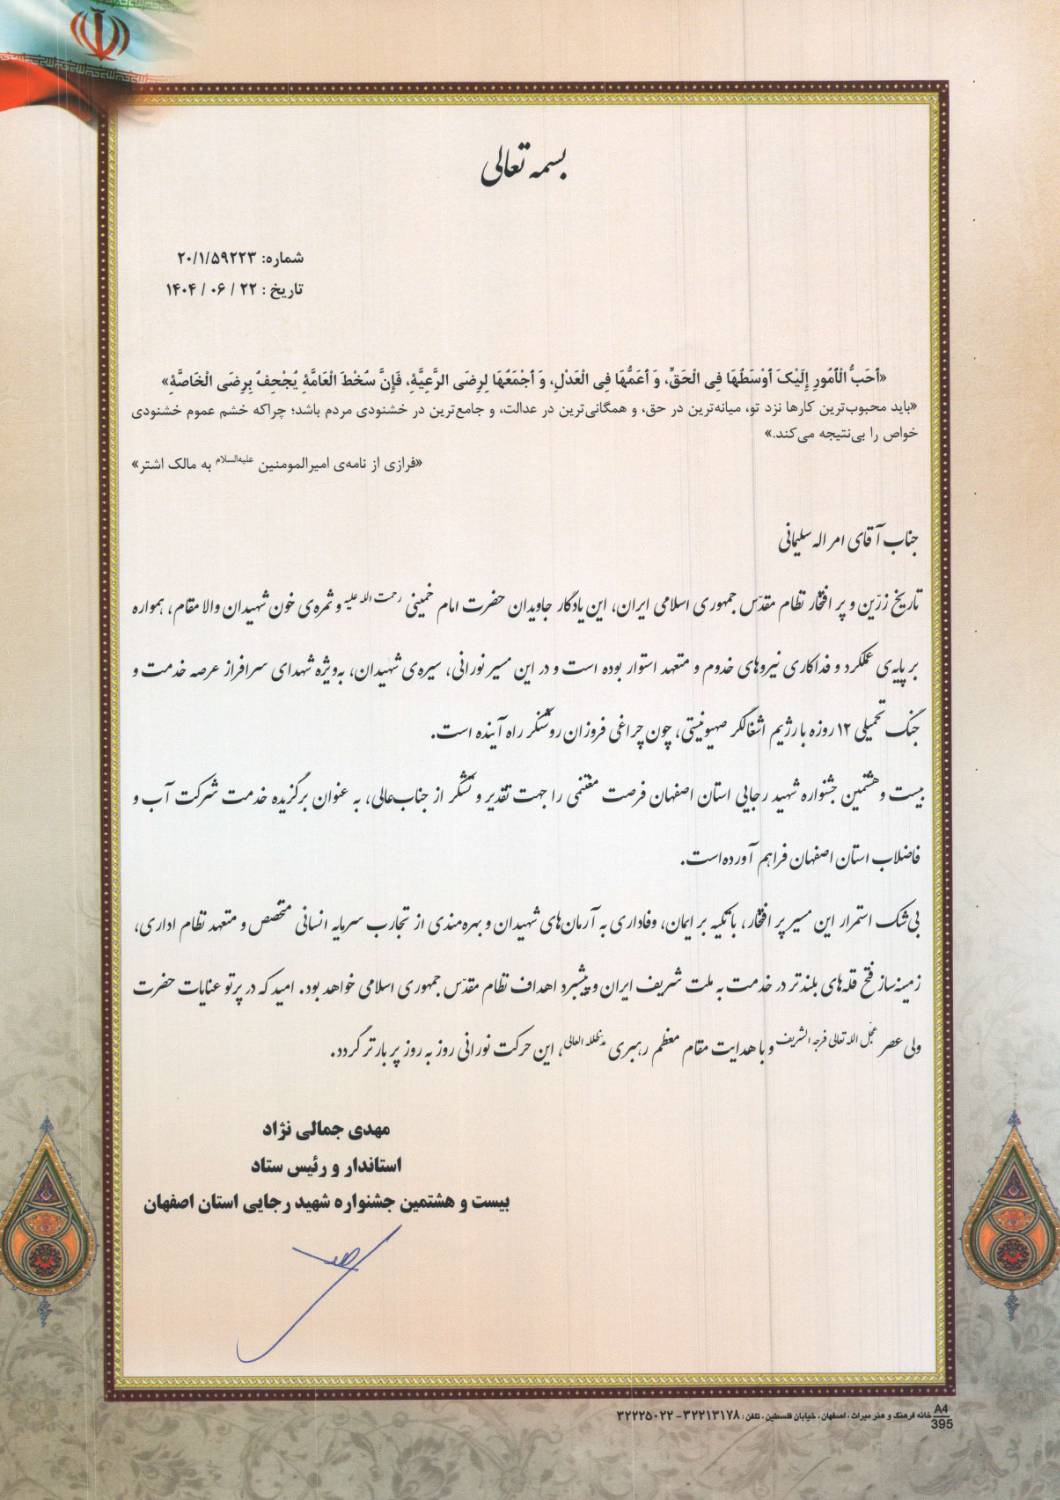 بسمه تعالی
شماره: ۲۰/۱/۵۹۲۲۳
تاریخ : ۲۲ / ۰۶ / ۱۴۰۴
«أحَبُّ الْأمُورِ إلَیْکَ أوْسَطُهَا فِی الْحَقِّ، وَ أعَمُّهَا فِی الْعَدْلِ، وَ أجْمَعُهَا لِرِضَی الرَّعِیَّةِ، فَإنَّ سُخْطَ الْعَامَّةِ یُجْحِفُ بِرِضَی الْخَاصَّةِ»
«باید محبوب‌ترین کارها نزد تو، میانه‌ترین در حق، و همگانی‌ترین در عدالت، و جامع‌ترین در خشنودی مردم باشد؛ چراکه خشم عموم خشنودی
خواص را بی‌نتیجه می‌کند.»
«فرازی از نامه‌ی امیرالمومنین علیه‌السلام به مالک اشتر»
جناب آقای امراله سلیمانی
تاریخ زرّین و پر افتخار نظام مقدّس جمهوری اسلامی ایران، این یادگار جاویدان حضرت امام خمینی رحمت الله علیه و ثمره‌ی خون شهیدان والا مقام، همواره
بر پایه‌ی عملکرد و فداکاری نیروهای خدوم و متعهد استوار بوده است و در این مسیر نورانی، سیره‌ی شهیدان، به‌ویژه شهدای سرافراز عرصه خدمت و
جنگ تحمیلی ۱۲ روزه با رژیم اشغالگر صهیونیستی، چون چراغی فروزان روشنگر راه آینده است.
بیست و هشتمین جشنواره شهید رجایی استان اصفهان فرصت مغتنمی را جهت تقدیر و تشکر از جناب‌عالی، به عنوان برگزیده خدمت شرکت آب و
فاضلاب استان اصفهان فراهم آورده‌است.
بی‌شک استمرار این مسیر پر افتخار، با تکیه بر ایمان، وفاداری به آرمان‌های شهیدان و بهره‌مندی از تجارب سرمایه انسانی متخصص و متعهد نظام اداری،
زمینه‌ساز فتح قله‌های بلندتر در خدمت به ملت شریف ایران و پیشبرد اهداف نظام مقدّس جمهوری اسلامی خواهد بود. امید که در پرتو عنایات حضرت
ولی عصر عجّل الله تعالی فرجه الشریف و با هدایت مقام معظم رهبری مدّظله العالی، این حرکت نورانی روز به روز پر بارتر گردد.
مهدی جمالی نژاد
استاندار و رئیس ستاد
بیست و هشتمین جشنواره شهید رجایی استان اصفهان
A4
395
خانه فرهنگ و هنر میراث ، اصفهان ، خیابان فلسطین ، تلفن : ۳۲۲۱۳۱۷۸ - ۳۲۲۲۵۰۲۲